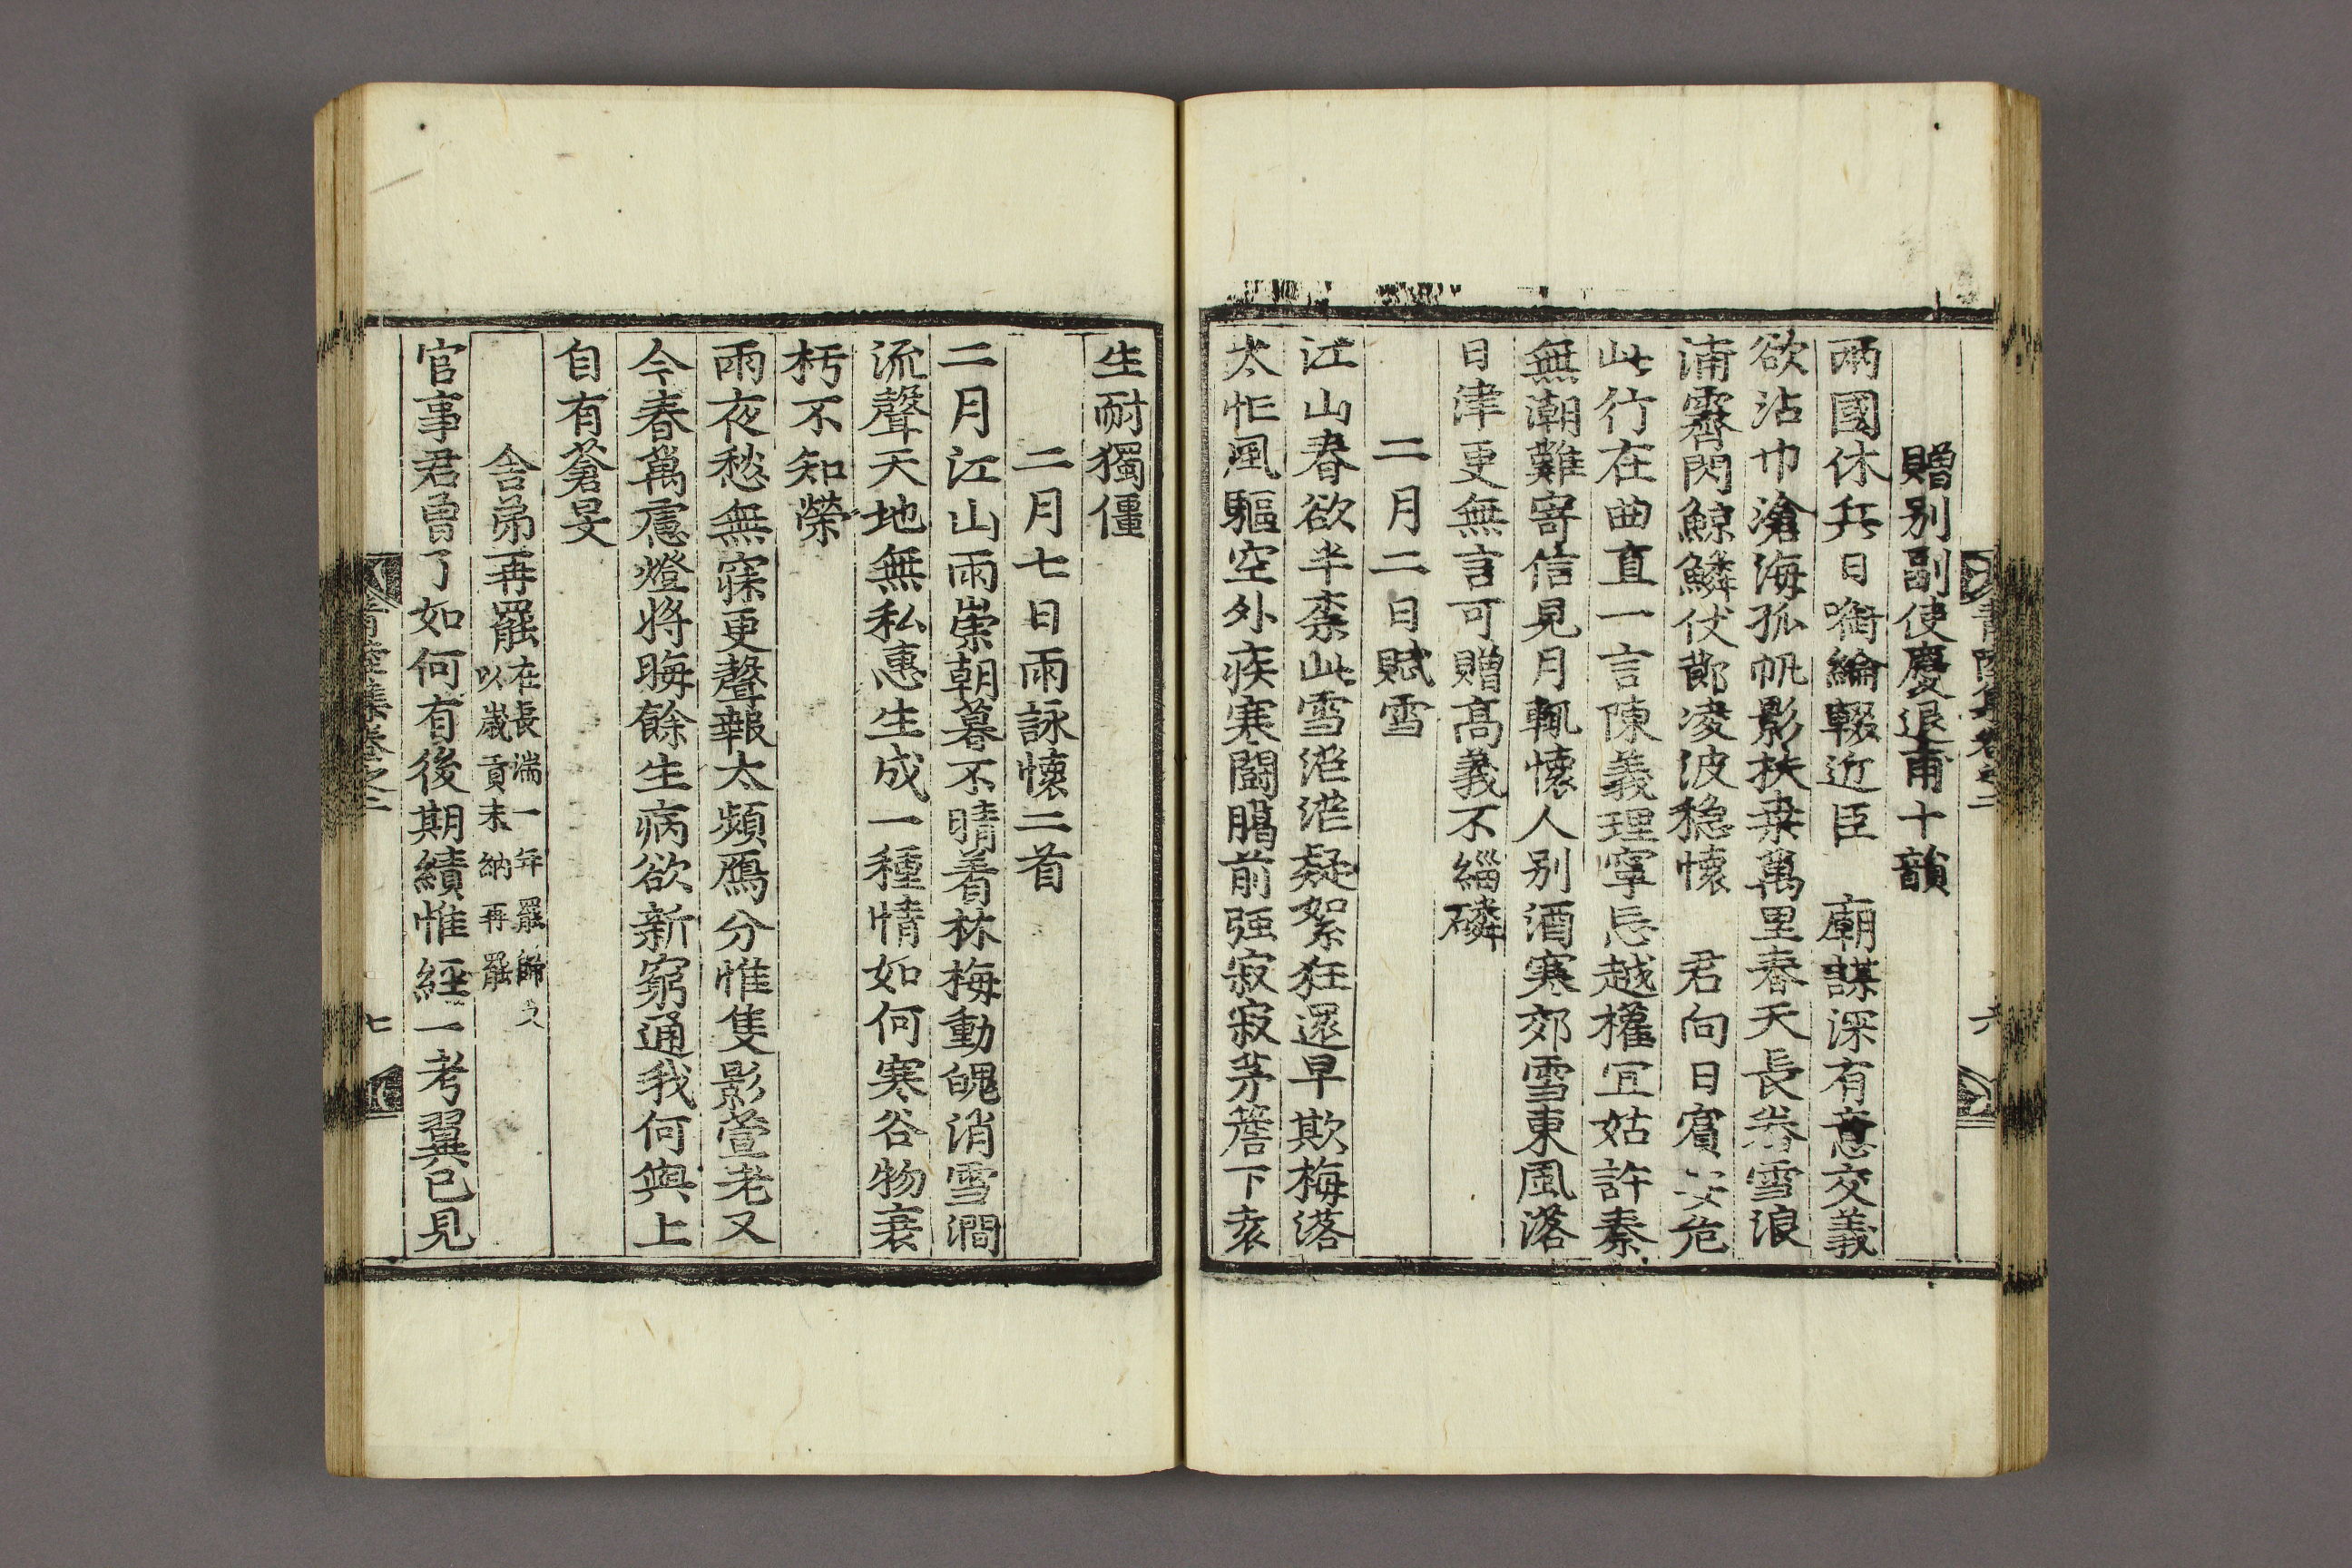 贈別副使慶退甫十韻
兩國休兵日銜綸輟近臣 廟謀深有意交義
欲沾巾滄海孤帆影扶桒萬里春天長岺雪浪
浦霽閃鯨鱗伏莭凌波穩懷 君向日賓安危
此行在曲直一言陳義理寧忘越權冝姑許秦
無潮難寄信見月輒懷人別酒寒郊雪東風落
日津更無言可贈高義不緇磷
二月二日賦雪
江山春欲半柰此雪茫茫凝絮狂還早欺梅落
太忙風驅空外疾寒鬪臈前强寂寂茅簷下袁
生耐獨僵
二月七日雨詠懷二首
二月江山雨崇朝暮不晴着林梅動魄消雪澗
流聲天地無私惠生成一種情如何寒谷物衰
朽不知榮
雨夜愁無寐更聲報太頻鴈分惟隻影萱老又
今春萬慮燈將晦餘生病欲新窮通我何與上
自有蒼旻
舍弟再罷在長湍一年罷歸久
以歲貢未納再罷
官事君曾了如何有後期績惟經一考翼已見
青陸集卷之二
六
七